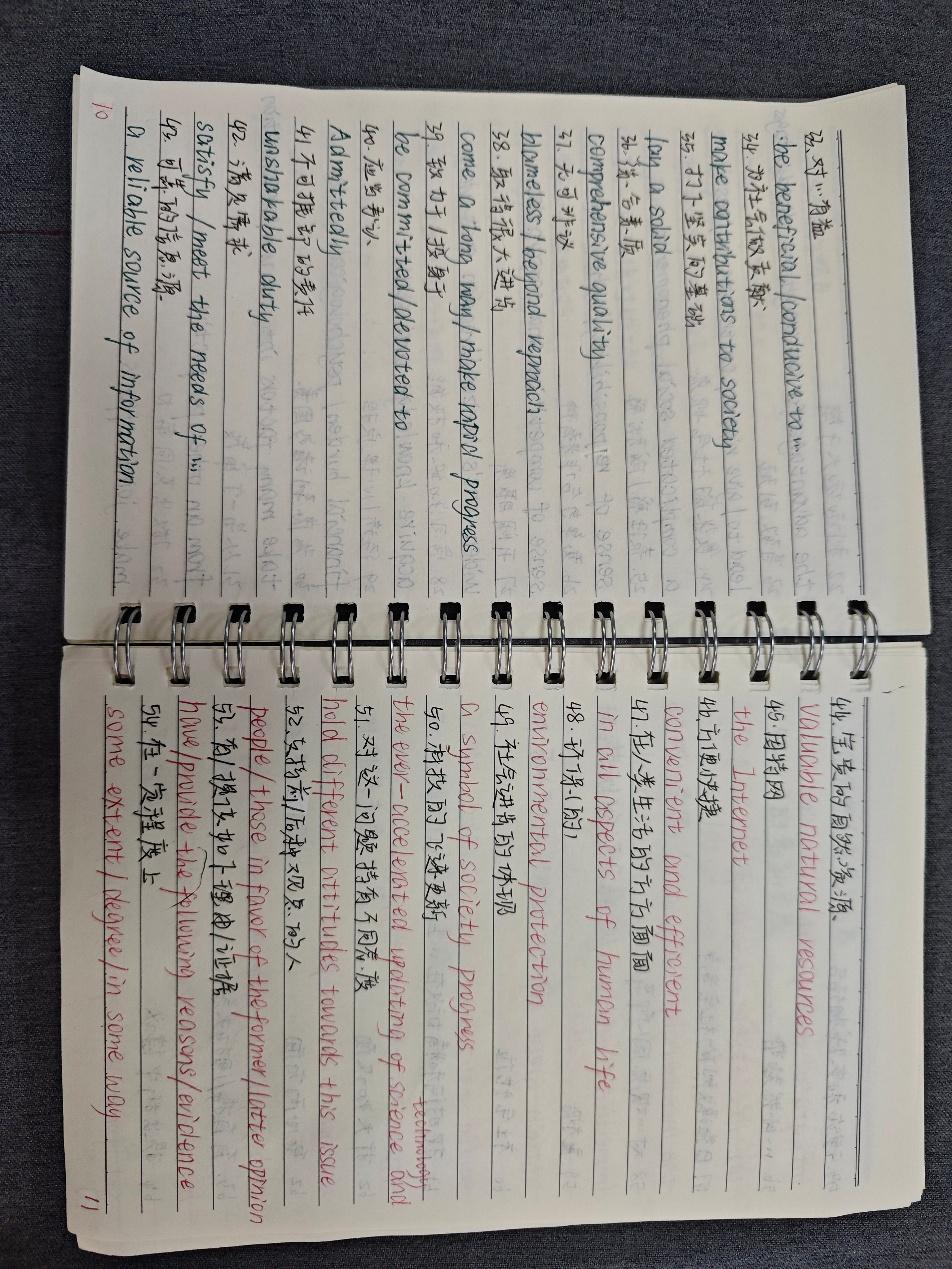 33. 对…有益
be beneficial/conducive to …
34. 为社会做贡献
make contributions to society
35. 打下坚实的基础
lay a solid
36. 综合素质
comprehensive quality
37. 无可非议
blameless/beyond reproach
38. 取得很大进步
come a long way/make rapid progress
39. 致力于/投身于
be committed/devoted to
40. 应当承认
Admittedly
41. 不可推卸的责任
unshakable duty
42. 满足需求
satisfy/meet the needs of …
43. 可靠的信息源
a reliable source of information
10
44. 宝贵的自然资源
valunable natural resources
45. 因特网
the Internet
46. 方便快捷
convenient and efficient
47. 在人类生活的方方面面
in all aspects of human life
48. 环保的
environmental protection
49. 社会进步的体现
a symbol of society progress
50. 科技的飞速更新
the ever-accelerated updating of science and
technology
51. 对这一问题持有不同态度
hold different attitudes towards this issue
52. 支持前/后种观点的人
people/those in favor of the former/latter opinion
53. 有/提供如下理由/证据
have/provide the following reasons/evidence
54. 在一定程度上
some extent/degree/in some way
11